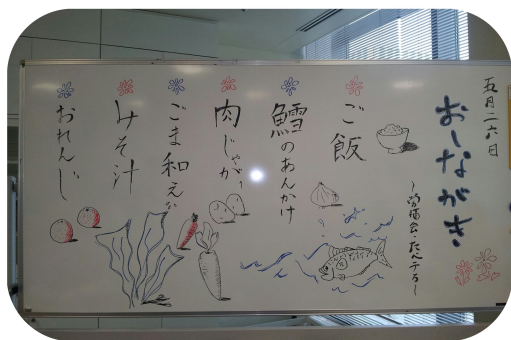 五月二六日
おしながき
ご飯
鱈のあんかけ
肉じゃが
ごま和え
みそ汁
おれんじ